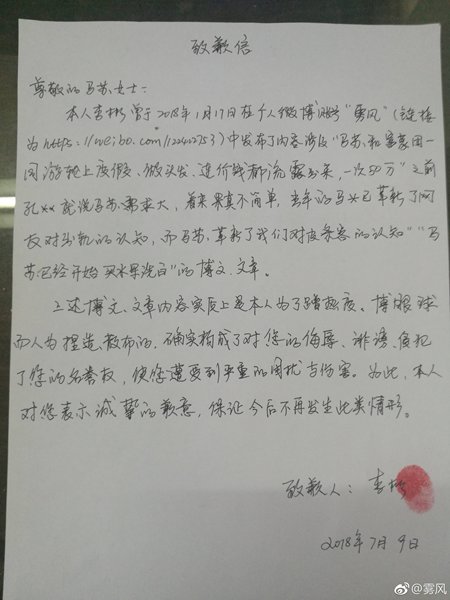 致歉信
尊敬的马苏女士：
本人李彬曾于2018年1月17日在个人微博账号"雾风"（链接
为https://weibo.com/122402753）中发布了内容涉及"马苏和富豪团一
同游轮上度假、做头发、连价钱都流露出来，一次50万"之前
孔**就说马苏需求大，看来果真不简单，去年的马*已革新了网
友对出轨的认知，而马苏革新了我们对皮条客的认知""马
苏已经开始买水军洗白"的博文、文章。
上述博文、文章内容实质上是本人为了蹭热度、博眼球
而人为捏造、散布的，确实构成了对您的侮辱、诽谤、侵犯
了您的名誉权，使您遭受到严重的困扰与伤害。为此，本人
对您表示诚挚的歉意，保证今后不再发生此类情形。
致歉人：李彬
2018年7月9日
@雾风